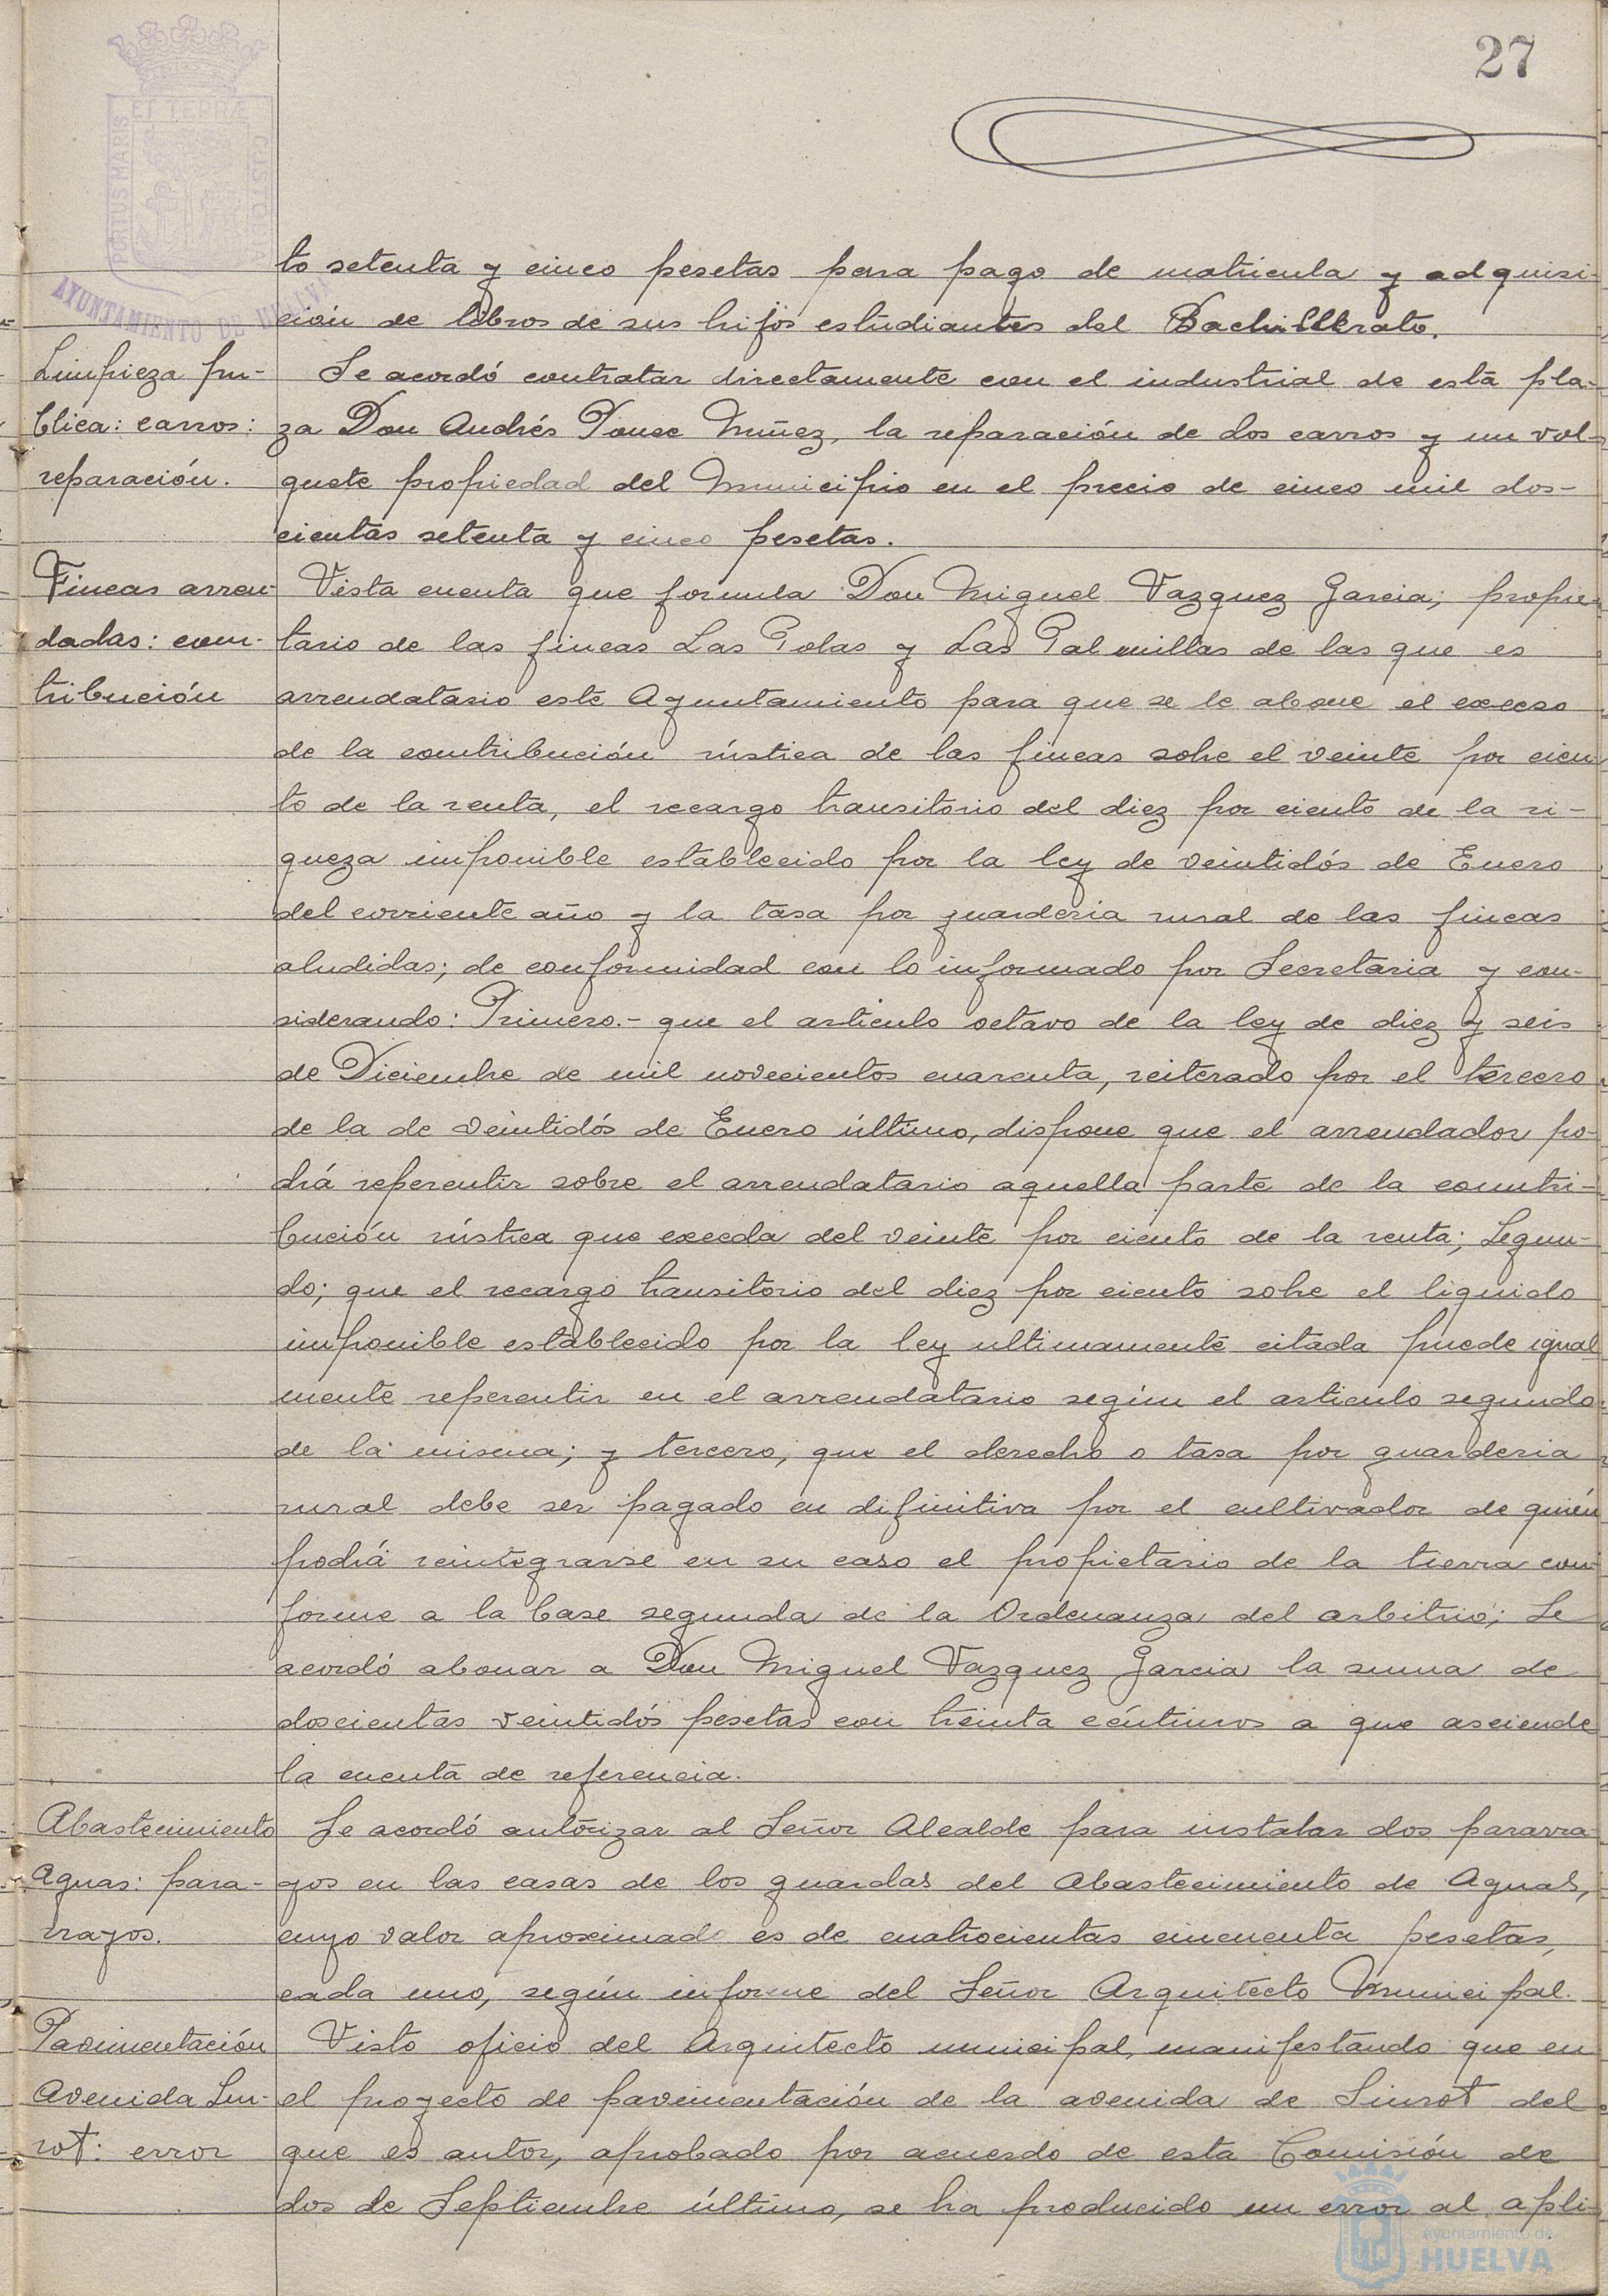 27
ET TERRÆ
PORTUS MARIS
CUSTODIA
AYUNTAMIENTO DE HUELVA
to setenta y cinco pesetas para pago de matricula y adquisi-
ción de libros de sus hijos estudiantes del Bachillerato.
Limpieza pú-
blica: carros:
reparación.
Se acordó contratar directamente con el industrial de esta pla-
za Don Andrés Ponce Nuñez, la reparación de dos carros y un vol-
quete propiedad del Municipio en el precio de cinco mil dos-
cientas setenta y cinco pesetas.
Fincas arren-
dadas: con-
tribución
Vista cuenta que formula Don Miguel Vazquez Garcia; propie-
tario de las fincas Las Polas y Las Palmillas de las que es
arrendatario este Ayuntamiento para que se le abone el exceso
de la contribución rústica de las fincas sobre el veinte por cien-
to de la renta, el recargo transitorio del diez por ciento de la ri-
queza imponible establecido por la ley de veintidós de Enero
del corriente año y la tasa por guarderia rural de las fincas
aludidas; de conformidad con lo informado por Secretaria y con-
siderando: Primero.- que el articulo octavo de la ley de diez y seis
de Diciembre de mil novecientos cuarenta, reiterado por el tercero
de la de veintidós de Enero último, dispone que el arrendador po-
drá repercutir sobre el arrendatario aquella parte de la contri-
bución rústica que exceda del veinte por ciento de la renta; Segun-
do; que el recargo transitorio del diez por ciento sobre el liquido
imponible establecido por la ley ultimamente citada puede igual-
mente repercutir en el arrendatario según el articulo segundo
de la misma; y tercero, que el derecho o tasa por guarderia
rural debe ser pagado en difinitiva por el cultivador de quién
podrá reintegrarse en su caso el propietario de la tierra con-
forme a la base segunda de la Ordenanza del arbitrio; Se
acordó abonar a Don Miguel Vazquez Garcia la suma de
doscientas veintidós pesetas con treinta céntimos a que asciende
la cuenta de referencia.
Abastecimiento
Aguas: para-
rrayos.
Se acordó autorizar al Señor Alcalde para instalar dos pararra-
yos en las casas de los guardas del Abastecimiento de Aguas,
cuyo valor aproximado es de cuatrocientas cincuenta pesetas,
cada uno, según informe del Señor Arquitecto Municipal.
Pavimentación
Avenida Sun-
rot: error
Visto oficio del Arquitecto municipal, manifestando que en
el proyecto de pavimentación de la avenida de Sunrot del
que es autor, aprobado por acuerdo de esta Comisión de
dos de Septiembre último, se ha producido un error al apli-
Ayuntamiento de
HUELVA